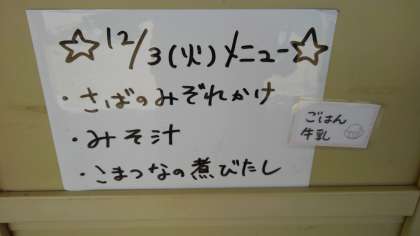 ☆12/3(火)メニュー☆
・さばのみぞれかけ
・みそ汁
・こまつなの煮びたし
ごはん
牛乳